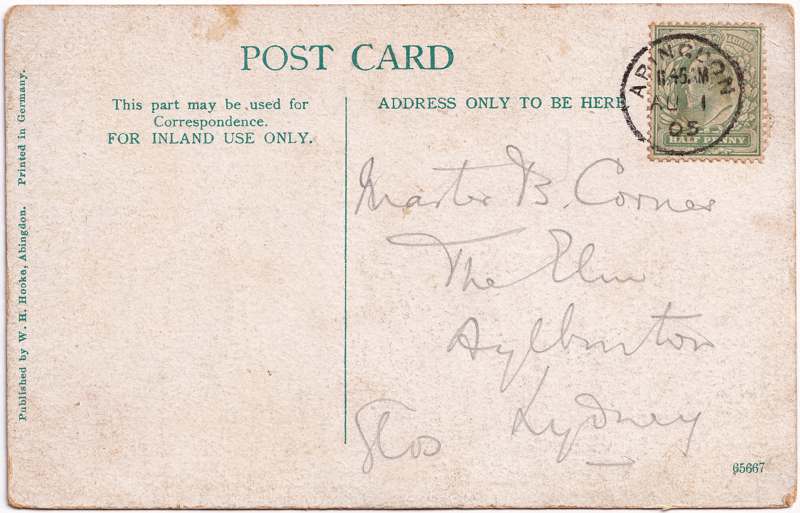 POST CARD
This part may be used for
Correspondence.
FOR INLAND USE ONLY.
ADDRESS ONLY TO BE HERE
ABINGDON
11.45AM
AU 1
05
HALF PENNY
Master B. Corner
The Elm
Aylburton
Lydney
Glos
Published by W. H. Hooke, Abingdon. Printed in Germany.
65667